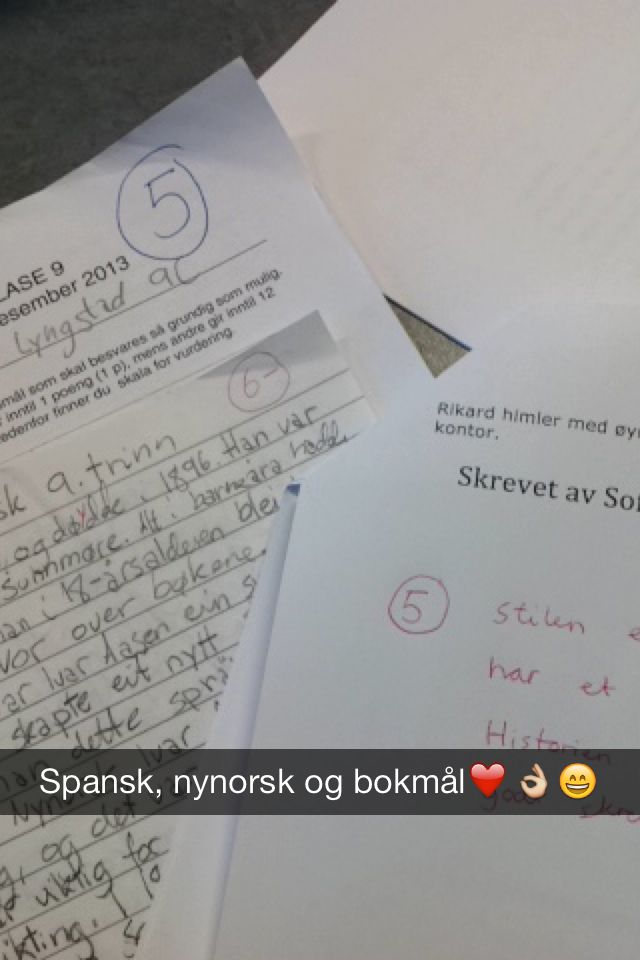 5
LASE 9
esember 2013
Lyngstad 9C
mål som skal besvares så grundig som mulig.
inntil 1 poeng (1 p), mens andre gir inntil 12
edenfor finner du skala for vurdering.
6-
sk 9. trinn
og dødde i 1896. Han var
Sunnmøre. At i barneåra hadde
han i 18-årsalderen blei
vor over bøkene.
ar Ivar Aasen ein s
skapte eit nytt
han dette språ
Nynorsk Ivar
g, og det
viktig for
ikting.
Rikard himler med øyn
kontor.
Skrevet av Sof
5
Stilen e
har et
Historien
Spansk, nynorsk og bokmål❤️👌🏼😄
god skre